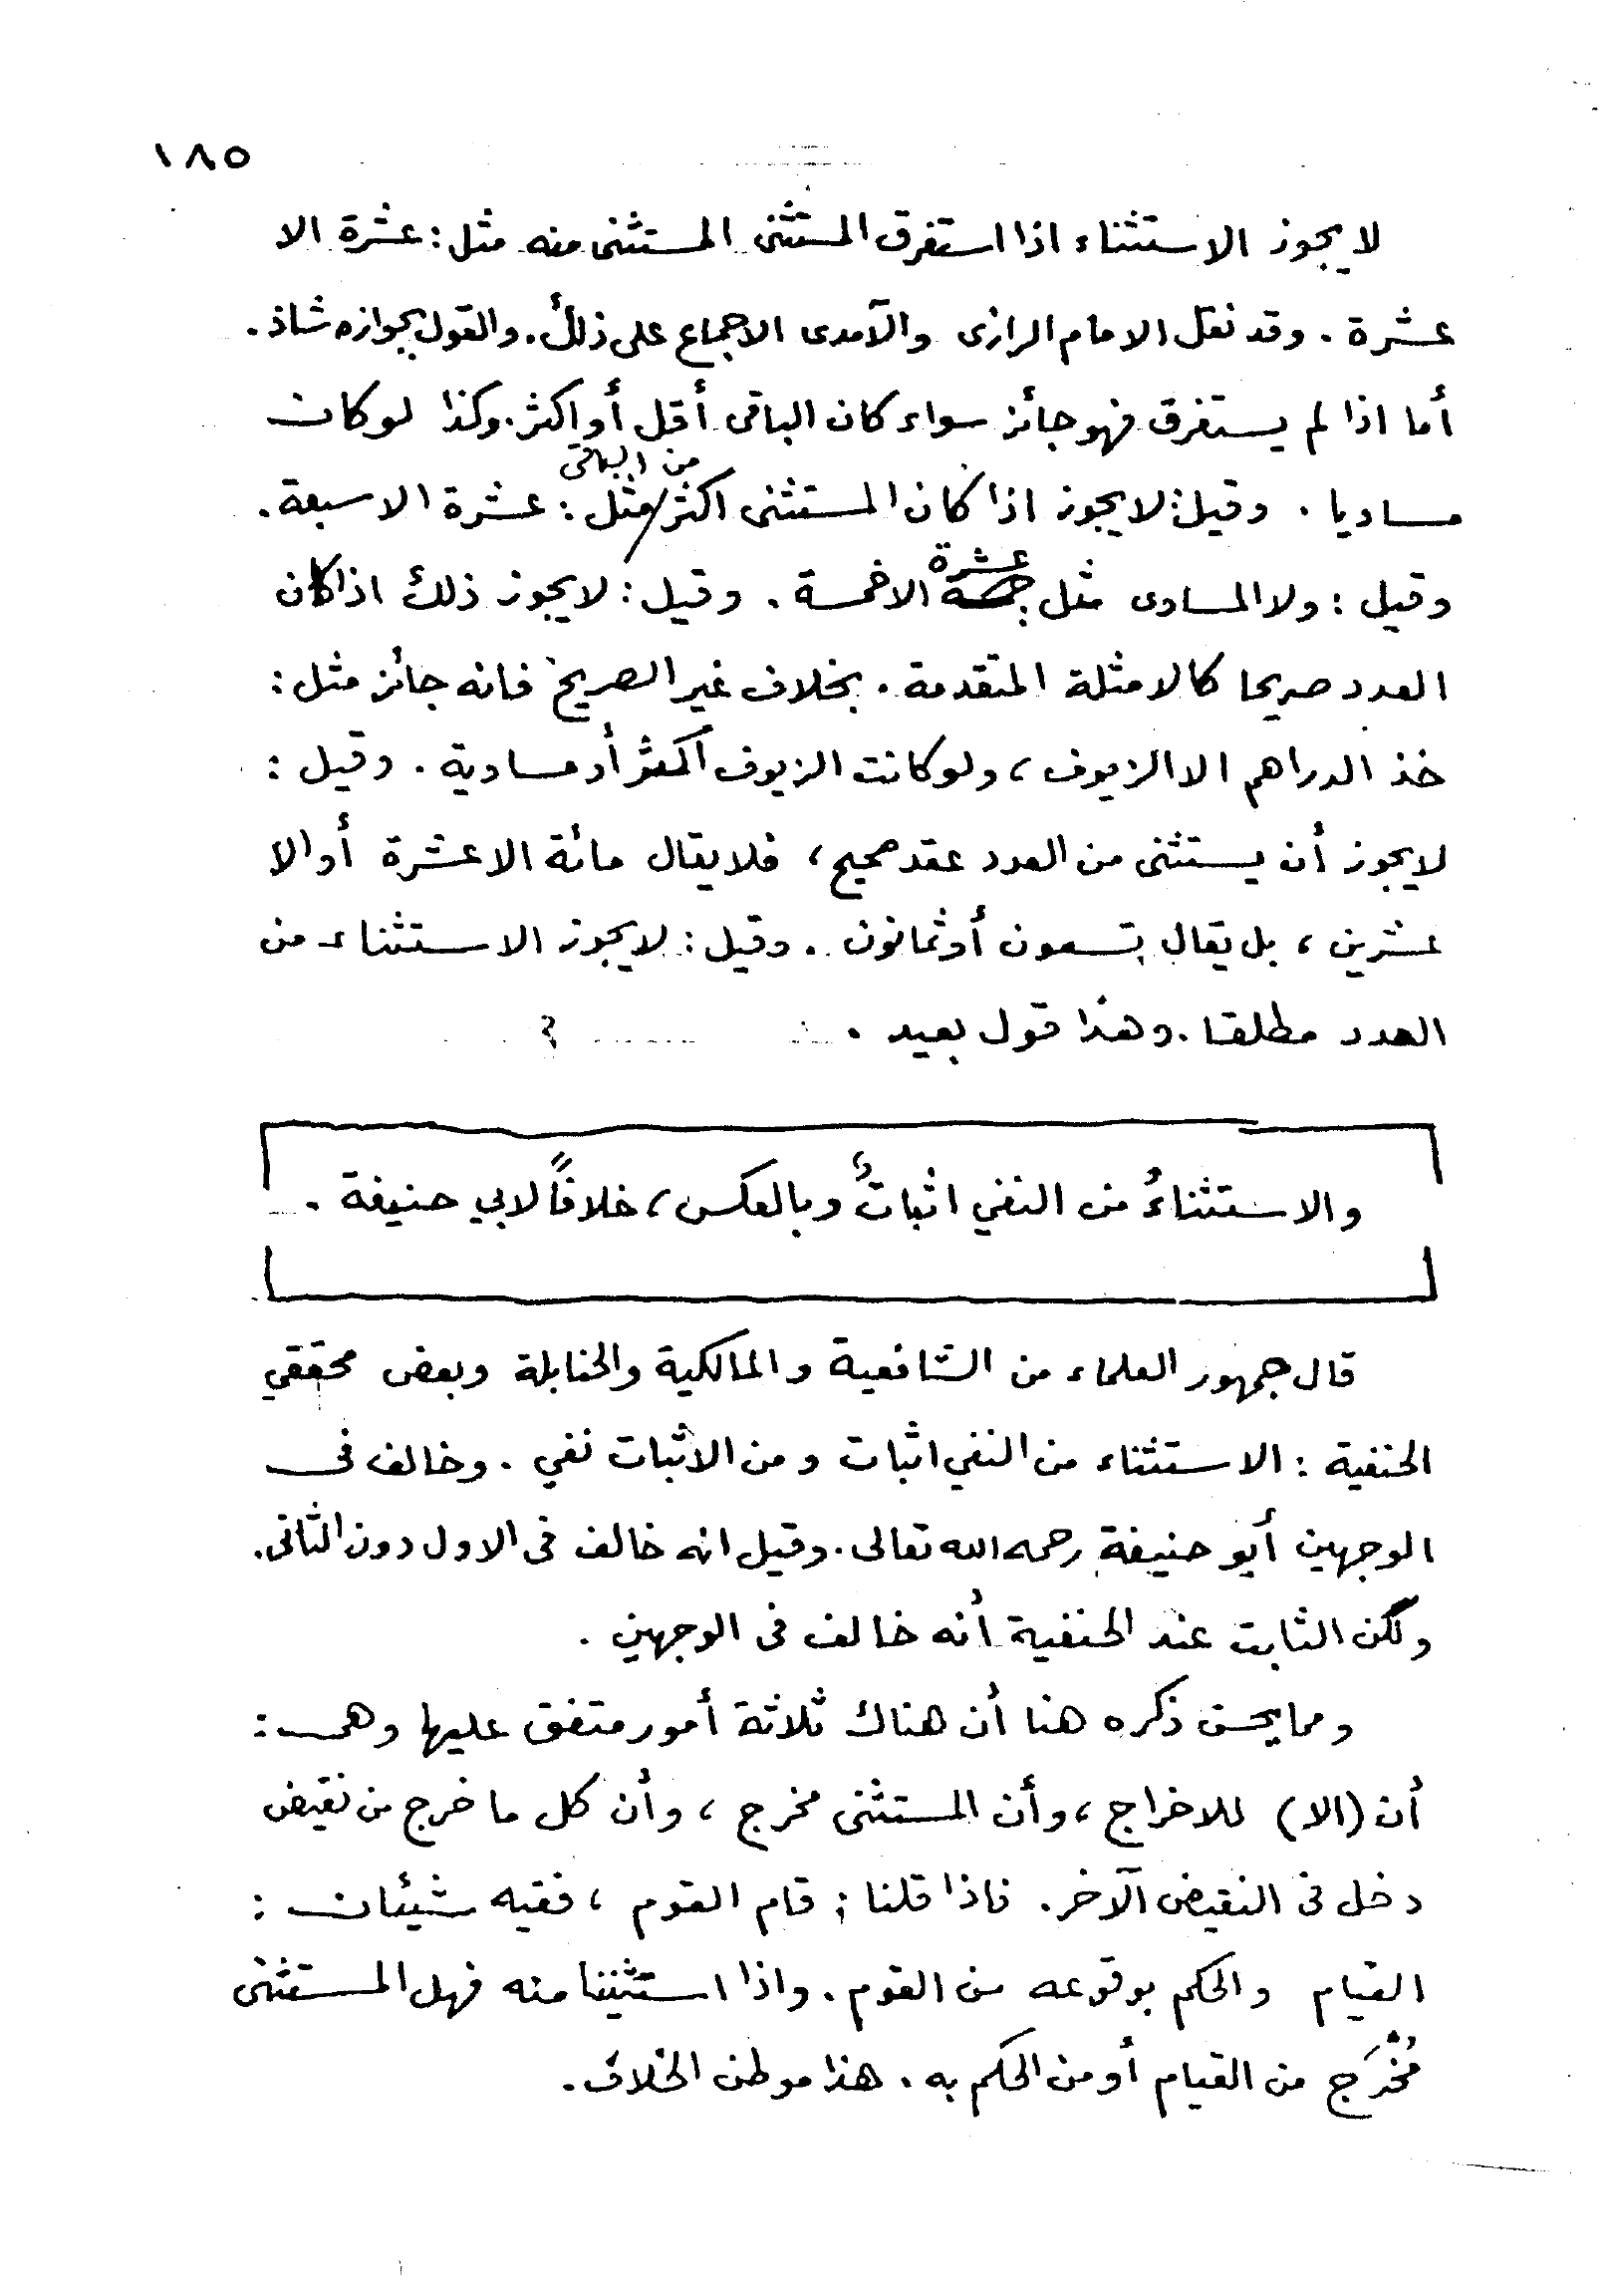 ١٨٥
لا يجوز الاستثناء اذا استغرق المستثنى المستثنى منه مثل: عشرة الا
عشرة. وقد نقل الامام الرازى والآمدى الاجماع على ذلك. والقول بجوازه شاذ.
أما اذا لم يستغرق فهو جائز سواء كان الباقى أقل أو اكثر. وكذا لو كان
مساويا. وقيل: لا يجوز اذا كان المستثنى اكثر من الباقى مثل: عشرة الا سبعة.
وقيل: ولا المساوى مثل عشرة الا خمسة. وقيل: لا يجوز ذلك اذا كان
العدد صريحا كالامثلة المتقدمة. بخلاف غير الصريح فانه جائز مثل:
خذ الدراهم الا الزيوف، ولو كانت الزيوف اكثر أو مساوية. وقيل:
لا يجوز أن يستثنى من العدد عقد صحيح، فلا يقال مائة الا عشرة أو الا
عشرين، بل يقال تسعون أو ثمانون. وقيل: لا يجوز الاستثناء من
العدد مطلقا. وهذا قول بعيد.
والاستثناءُ من النفي اثباتٌ، وبالعكس، خلافًا لابي حنيفة.
قال جمهور العلماء من الشافعية والمالكية والحنابلة وبعض محققي
الحنفية: الاستثناء من النفي اثبات ومن الاثبات نفي. وخالف فى
الوجهين أبو حنيفة رحمه الله تعالى. وقيل انه خالف فى الاول دون الثانى.
ولكن الثابت عند الحنفية أنه خالف فى الوجهين.
ومما يحسن ذكره هنا أن هناك ثلاثة أمور متفق عليها وهى:
أن (الا) للاخراج، وأن المستثنى مخرج، وأن كل ما خرج من نقيض
دخل فى النقيض الآخر. فاذا قلنا: قام القوم، ففيه شيئان:
القيام والحكم بوقوعه من القوم. واذا استثنينا منه فهل المستثنى
مُخْرَج من القيام أو من الحكم به. هذا موطن الخلاف.